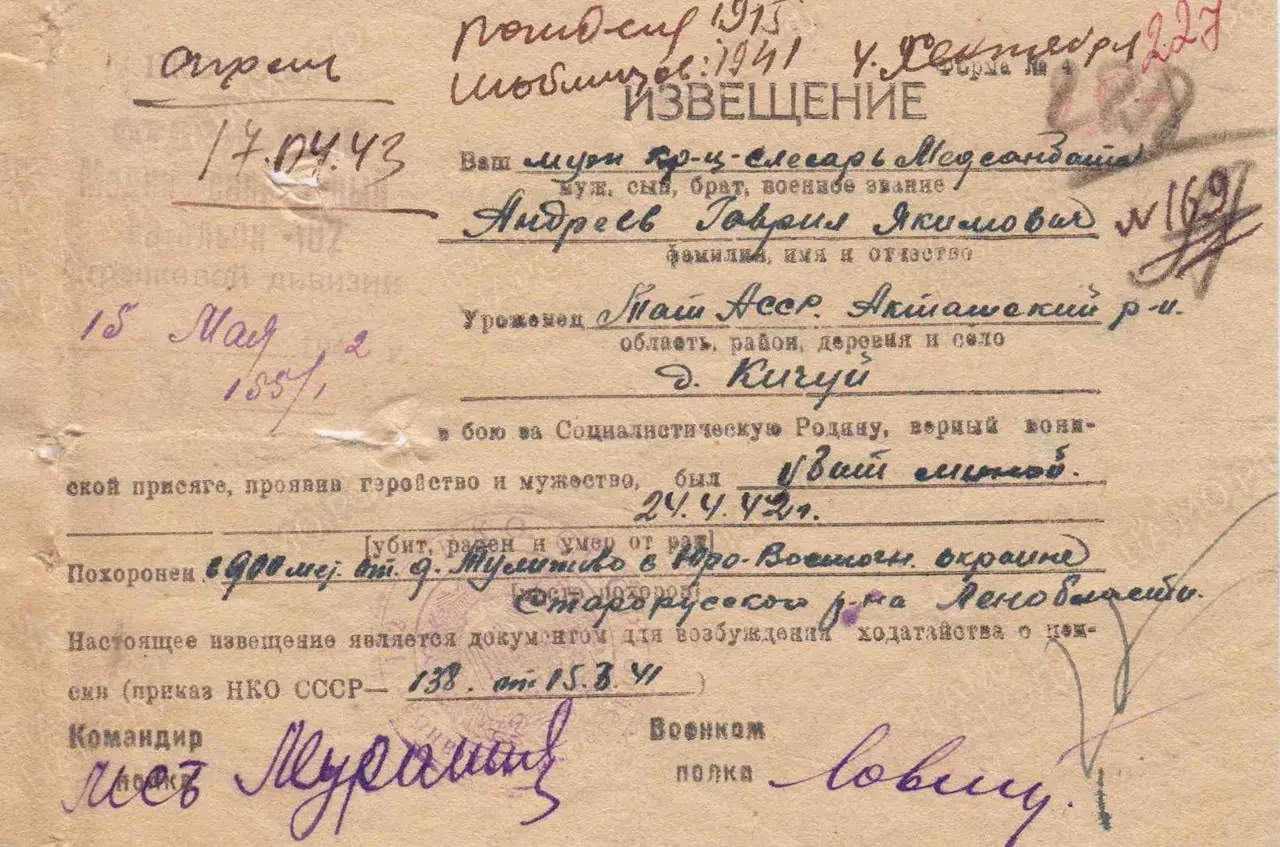 апрель
17.04.43
рождения 1915
1941 4. Сентября
227
228
Форма № 4
ИЗВЕЩЕНИЕ
Ваш муж кр-ц-слесарь Медсанбата
муж, сын, брат, военное звание
Андреев Гаврил Якимович № 169
фамилия, имя и отчество
15 Мая
155/1 2
Уроженец Тат АССР. Акташский р-н.
область, район, деревня и село
д. Кичуй
в бою за Социалистическую Родину, верный воин-
ской присяге, проявив геройство и мужество, был убит миной.
24.4.42г.
[убит, ранен и умер от ран]
Похоронен в 900 мет. от. д. Тулитово с Юго-Восточн. окраине
[место похорон]
Старорусского р-на Ленобласти.
Настоящее извещение является документом для возбуждения ходатайства о пен-
сии (приказ НКО СССР— 138. от 15.3.41 )
Командир
полка
Военком
полка